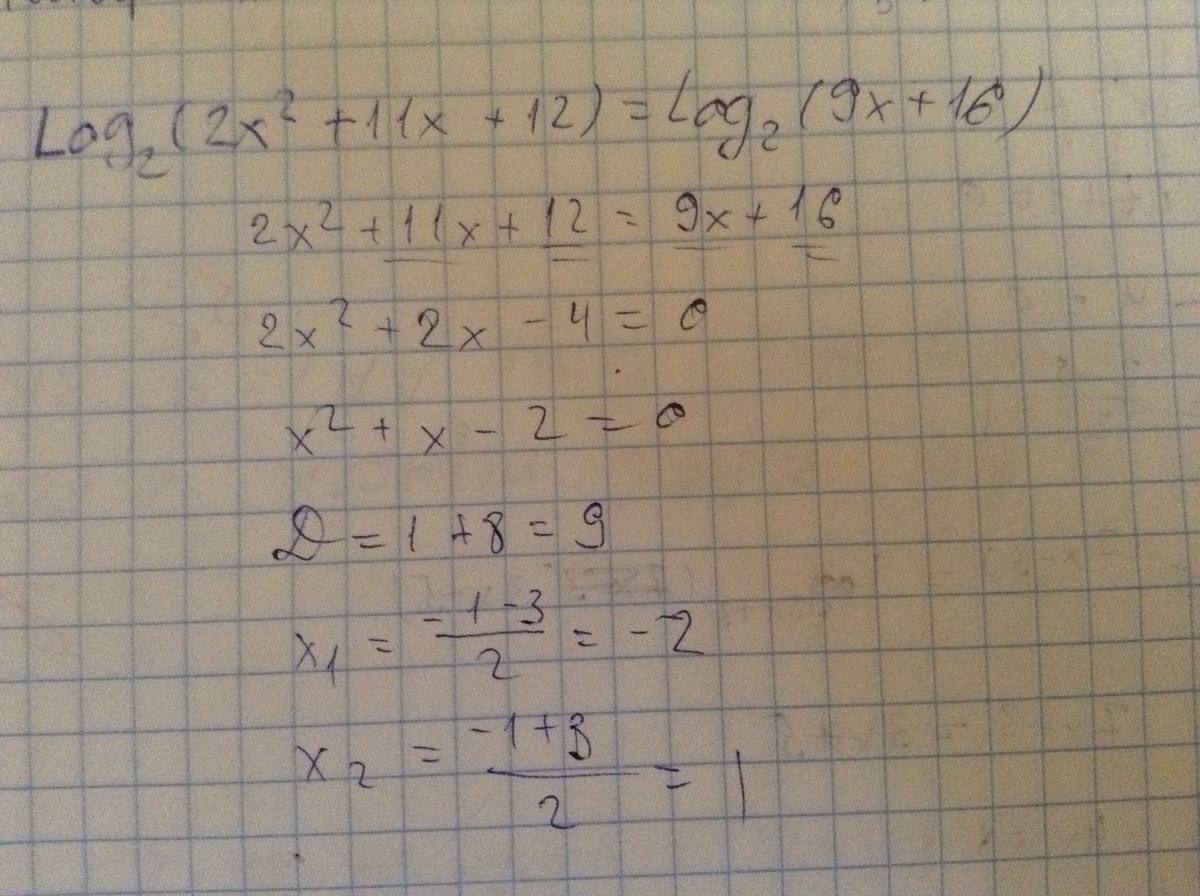 Log₂(2x² + 11x + 12) = Log₂(9x + 16)
2x² + 11x + 12 = 9x + 16
2x² + 2x - 4 = 0
x² + x - 2 = 0
D = 1 + 8 = 9
x₁ = (-1 - 3)/2 = -2
x₂ = (-1 + 3)/2 = 1